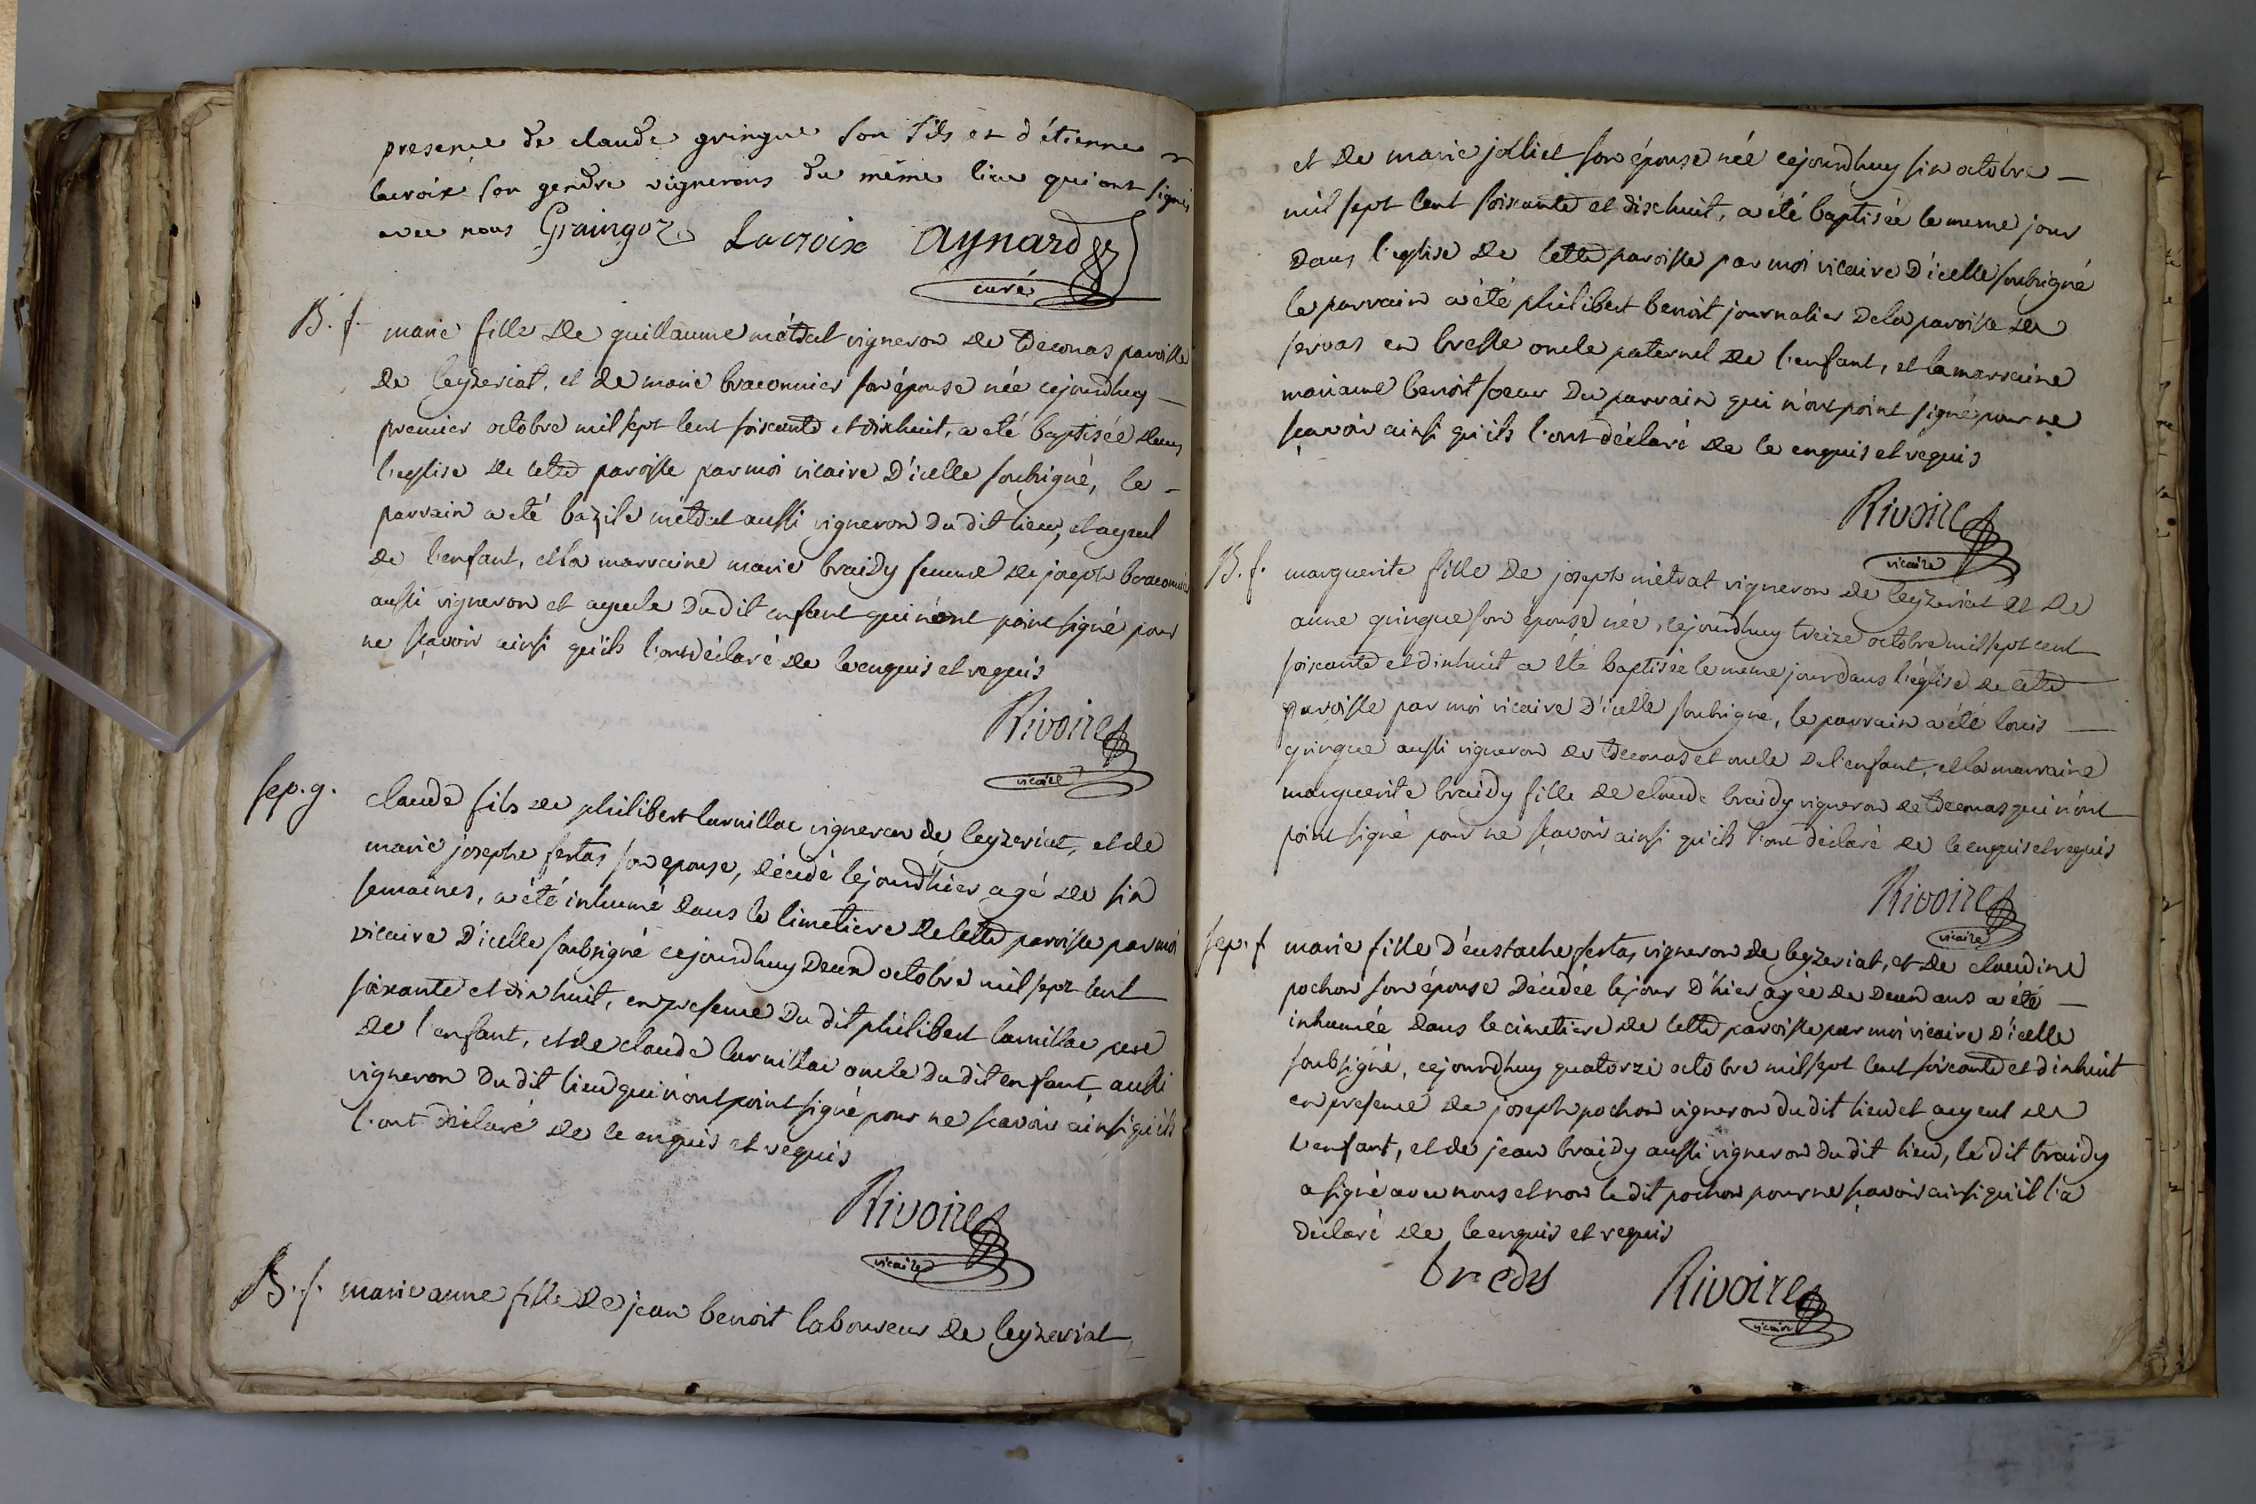 presence de claude gringue son fils et d'étienne
lacroix son gendre vignerons du même lieu qui ont signés
avec nous Graingoz Lacroix aynard
curé
B. f. marie fille de guillaume métrat vigneron de tecomas paroisse
de ceyzeriat, et de marie braconnier son épouse née cejourdhuy
premier octobre mil sept cent soixante et dixhuit, a eté baptisée dans
l'eglise de cette paroisse par moi vicaire d'icelle soubsigné, le
parrain a eté bazile métrat aussi vigneron du dit lieu, et ayeul
de l'enfant, et la marraine marie braidy femme de joseph braconnier
aussi vigneron et ayeule dudit enfant qui n'ont point signé pour
ne sçavoir ainsi qu'ils l'ont déclaré de ce enquis et requis
Rivoire
vicaire
sep. g. claude fils de philibert curnillac vigneron de ceyzeriat, et de
marie josephe fertas son epouse, décédé le jour d'hier agé de six
semaines, a été inhumé dans le cimetiere de cette paroisse par moi
vicaire d'icelle soubsigné cejourdhuy deux octobre mil sept cent
soixante et dix huit, en presence du dit philibert curnillac pere
de l'enfant, et de claude curnillac oncle du dit enfant, aussi
vigneron du dit lieu qui n'ont point signé pour ne scavoir ainsi qu'ils
l'ont déclaré de ce enquis et requis
Rivoire
vicaire
B. f. marie anne fille de jean benoit laboureur de ceyzeriat
et de marie jolliet son épouse née cejourdhuy six octobre
mil sept cent soixante et dixhuit, a été baptisée le meme jour
dans l'eglise de cette paroisse par moi vicaire d'icelle soubsigné
le parrain a été philibert benoit journalier de la paroisse de
servas en bresse oncle paternel de l'enfant, et la marraine
marianne benoit soeur du parrain qui n'ont point signé pour ne
sçavoir ainsi qu'ils l'ont déclaré de ce enquis et requis
Rivoire
vicaire
B. f. marguerite fille de joseph métrat vigneron de ceyzeriat et de
anne gringue son épouse née cejourdhuy treize octobre mil sept cent
soixante et dixhuit a été baptisée le meme jour dans l'église de cette
paroisse par moi vicaire d'icelle soubsigné, le parrain a été louis
gringue aussi vigneron de tecomas et oncle de l'enfant, et la marraine
marguerite braidy fille de claude braidy vigneron de tecomas qui n'ont
point signé pour ne sçavoir ainsi qu'ils l'ont déclaré de ce enquis et requis
Rivoire
vicaire
sep. f. marie fille d'eustache fertas vigneron de ceyzeriat, et de claudine
pochon son épouse décédée le jour d'hier agée de deux ans a été
inhumée dans le cimetiere de cette paroisse par moi vicaire d'icelle
soubsigné, cejourdhuy quatorze octobre mil sept cent soixante et dixhuit
en presence de joseph pochon vigneron du dit lieu et ayeul de
l'enfant, et de jean braidy aussi vigneron du dit lieu, le dit braidy
a signé avec nous et non le dit pochon pour ne sçavoir ainsi qu'il l'a
déclaré de ce enquis et requis
bredy Rivoire
vicaire